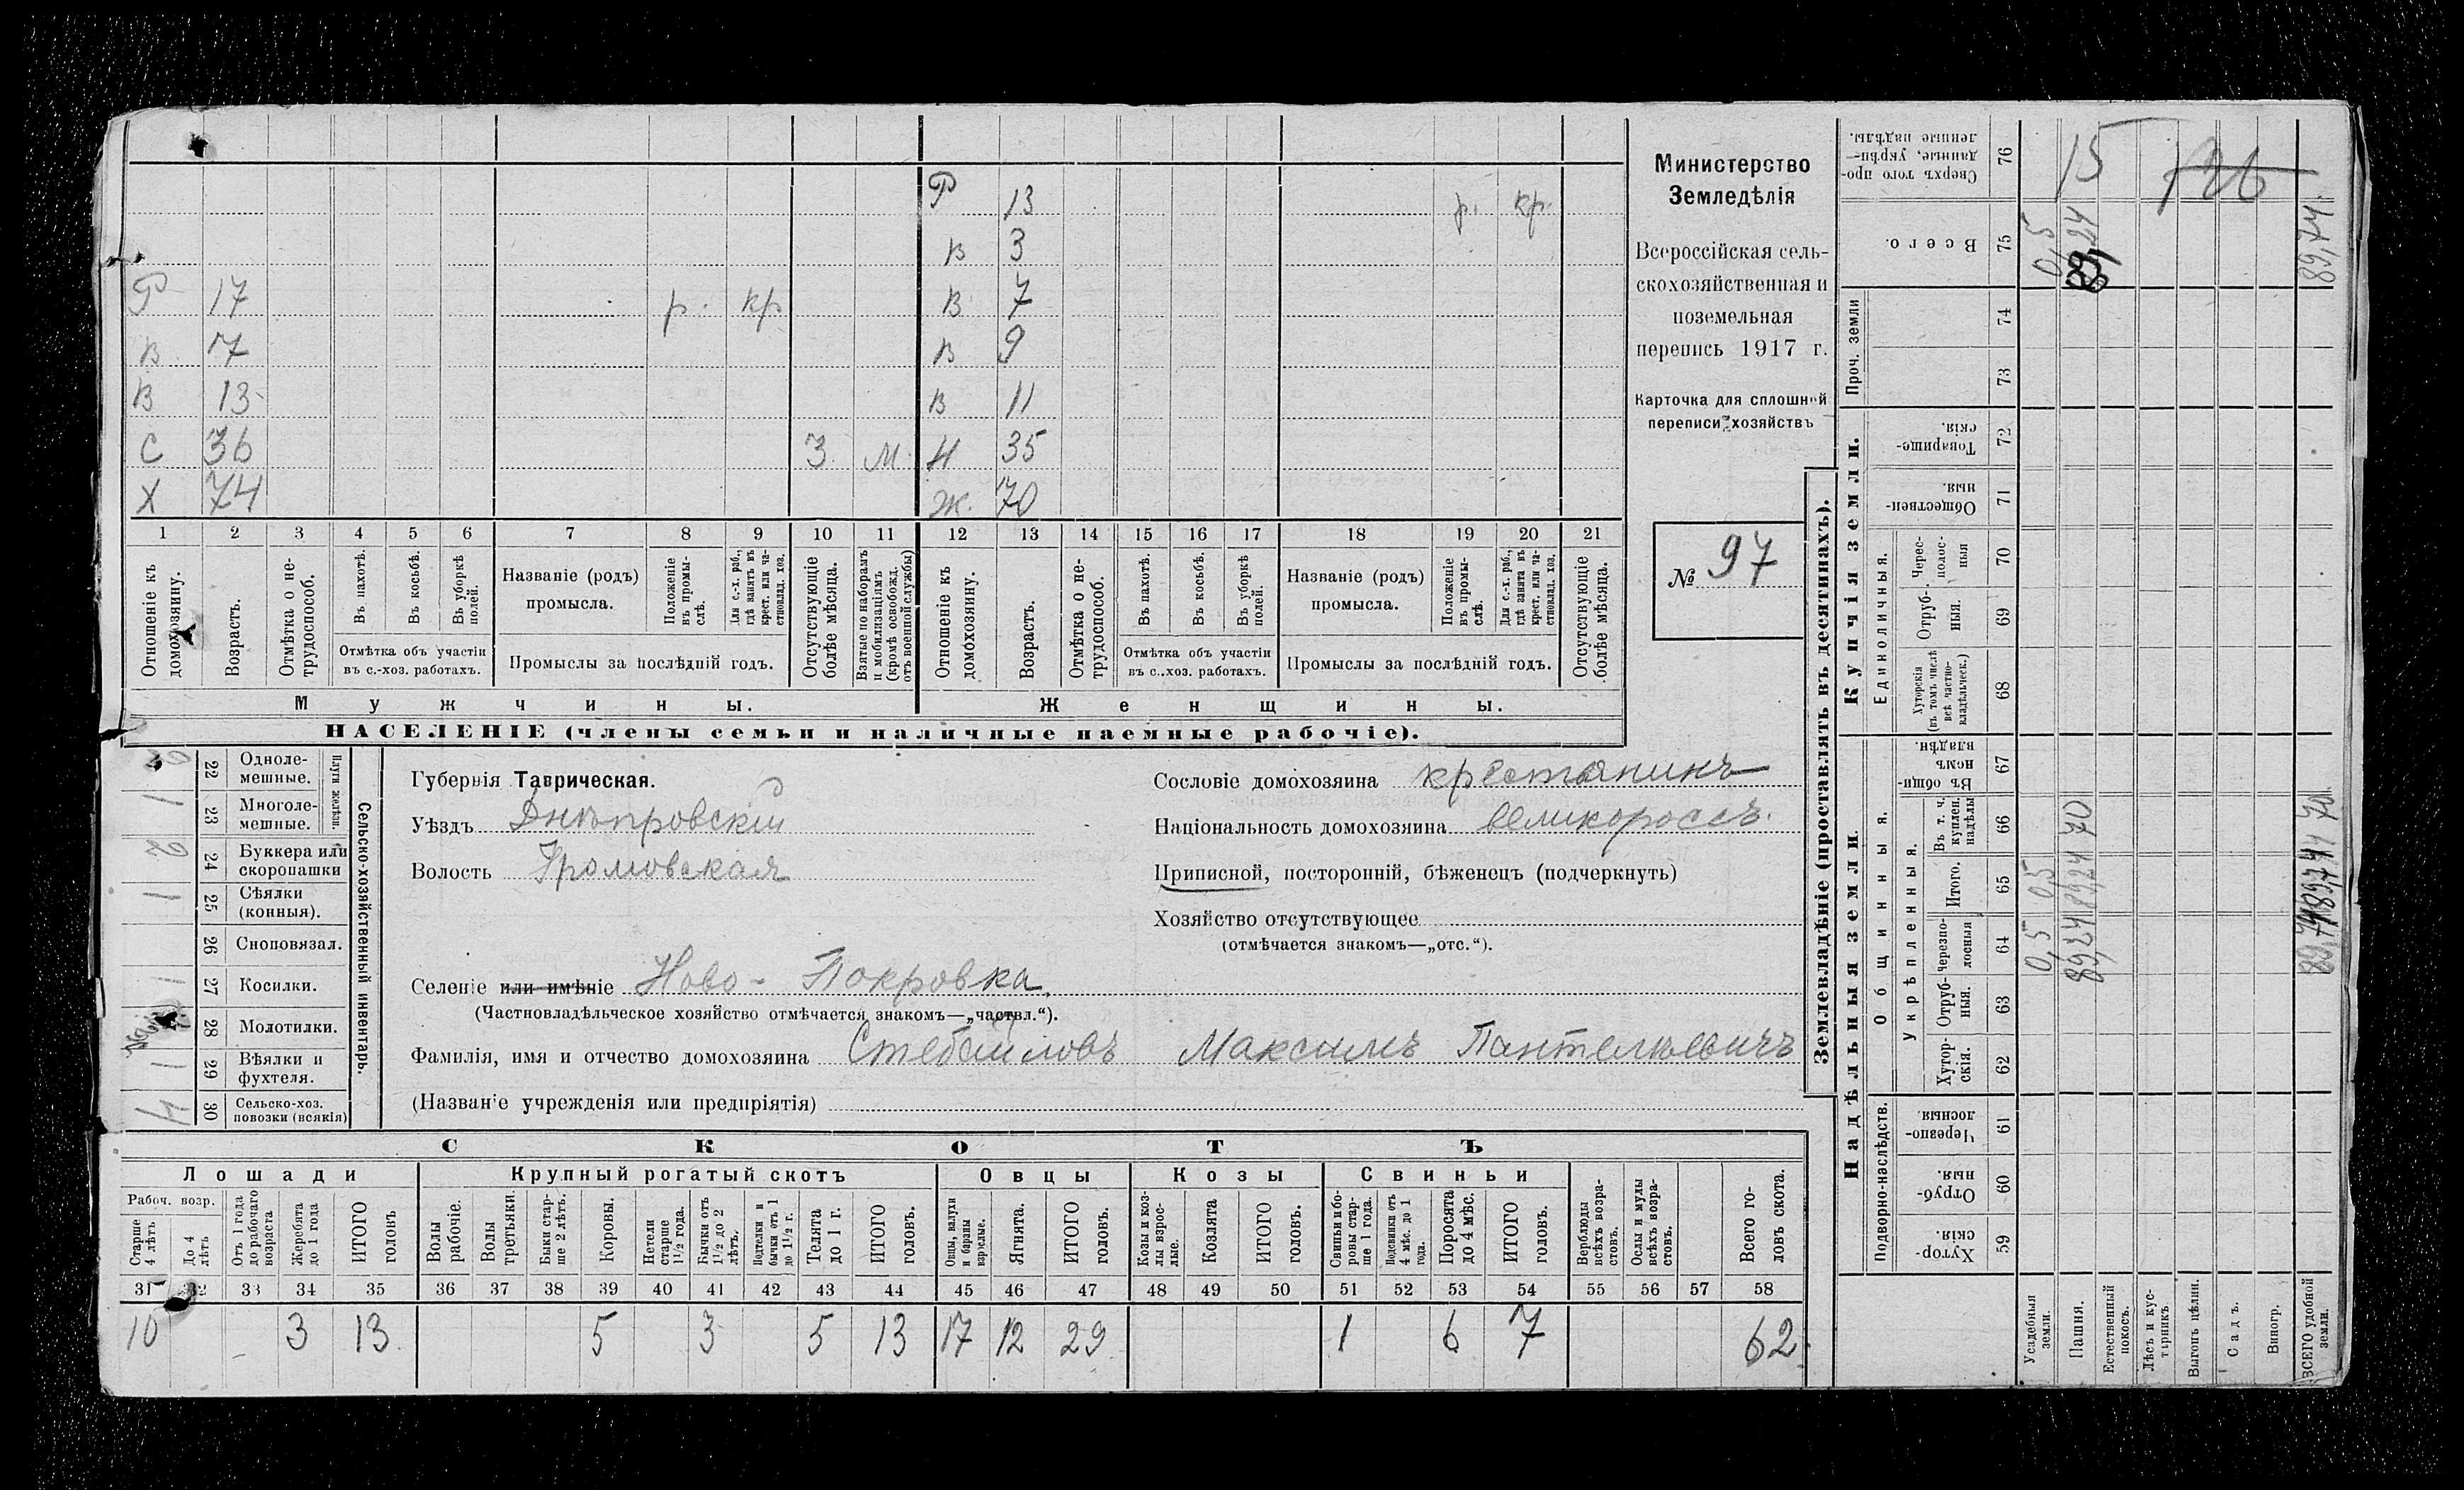 Р 13 р. кр.
В 3
Р 17 р. кр В 7
В 7 В 9
В 13 В 11
С 36 3 м. Н 35
Х 74 Ж. 70
1 2 3 4 5 6 7 8 9 10 11 12 13 14 15 16 17 18 19 20 21
Отношеніе къ домохозяину.
Возрастъ.
Отмѣтка о нетрудоспособ.
Въ пахотѣ.
Въ косьбѣ.
Въ уборкѣ полей.
Отмѣтка объ участіи
въ с.-хоз. работахъ.
Названіе (родъ)
промысла.
Положеніе въ промыслѣ.
Для с.-х. раб., гдѣ занятъ въ крест. или частновлад. хоз.
Промыслы за послѣдній годъ.
Отсутствующіе болѣе мѣсяца.
Взятые по наборамъ и мобилизаціямъ (кромѣ освобожд. отъ военной службы)
Отношеніе къ домохозяину.
Возрастъ.
Отмѣтка о нетрудоспособ.
Въ пахотѣ.
Въ косьбѣ.
Въ уборкѣ полей.
Отмѣтка объ участіи
въ с.-хоз. работахъ.
Названіе (родъ)
промысла.
Положеніе въ промыслѣ.
Для с.-х. раб., гдѣ занята въ крест. или частновлад. хоз.
Промыслы за послѣдній годъ.
Отсутствующіе болѣе мѣсяца.
Мужчины. Женщины.
НАСЕЛЕНІЕ (члены семьи и наличные наемные рабочіе).
Министерство
Земледѣлія
Всероссійская сель-
скохозяйственная и
поземельная
перепись 1917 г.
Карточка для сплошной
переписи хозяйствъ
№ 97
Сельско-хозяйственный инвентарь.
Плуги желѣзн.
22 Одноле-
мешные.
1 23 Многоле-
мешные.
2 24 Буккера или
скоропашки
1 25 Сѣялки
(конныя).
26 Сноповязал.
1 27 Косилки.
28 Молотилки.
1 29 Вѣялки и
фухтеля.
4 30 Сельско-хоз.
повозки (всякія)
Губернія Таврическая.
Уѣздъ Днѣпровскій
Волость Громовская
Сословіе домохозяина крестьянинъ
Національность домохозяина великороссъ.
Приписной, посторонній, бѣженецъ (подчеркнуть)
Хозяйство отсутствующее
(отмѣчается знакомъ—„отс.“).
Селеніе или имѣніе Ново-Покровка.
(Частновладѣльческое хозяйство отмѣчается знакомъ—„частвл.“).
Фамилія, имя и отчество домохозяина Стебайловъ Максимъ Пантелѣевичъ
(Названіе учрежденія или предпріятія)
СКОТЪ
Лошади Крупный рогатый скотъ Овцы Козы Свиньи
Рабоч. возр.
Старше 4 лѣтъ
До 4 лѣтъ
Отъ 1 года до рабочаго возраста
Жеребята до 1 года
ИТОГО головъ
Волы рабочіе.
Волы третьяки.
Быки старше 2 лѣтъ.
Коровы.
Нетели старше 1½ года.
Бычки отъ 1½ до 2 лѣтъ.
Подтелки и бычки отъ 1 до 1½ г.
Телята до 1 г.
ИТОГО головъ.
Овцы, валухи и бараны взрослые.
Ягнята.
ИТОГО головъ.
Козы и козлы взрослые.
Козлята
ИТОГО головъ.
Свиньи и боровы старше 1 года.
Подсвинки отъ 4 мѣс. до 1 года.
Поросята до 4 мѣс.
ИТОГО головъ.
Верблюды всѣхъ возрастовъ.
Ослы и мулы всѣхъ возрастовъ.
Всего головъ скота.
31 32 33 34 35 36 37 38 39 40 41 42 43 44 45 46 47 48 49 50 51 52 53 54 55 56 57 58
10 3 13 5 3 5 13 17 12 29 1 6 7 62
Землевладѣніе (проставлять въ десятинахъ).
Надѣльныя земли
Купчія земли.
Проч. земли
Подворно-наслѣдств.
Общинныя.
Укрѣпленныя.
Единоличныя.
Хуторскія 59
Отрубныя. 60
Черезполосныя 61
Хуторскія. 62
Отрубныя. 63
Черезполосныя 64
Итого. 65
Въ т. ч. куплен. надѣлы 66
Въ общинномъ владѣн. 67
Хуторскія (въ томъ числѣ всѣ частновладѣльческ.) 68
Отрубныя. 69
Чересполосныя 70
Общественныя. 71
Товарищескія. 72
73
74
Всего. 75
Сверхъ того проданные, укрѣпленные надѣлы. 76
Усадебныя земли. 0,5 0,5 0,5
Пашня. 89,24 89,24 70 89,24 15
Естественный покосъ.
Лѣсъ и кустарникъ
Выгонъ цѣлин.
Садъ.
Виногр.
ВСЕГО удобной земли. 89,74
126